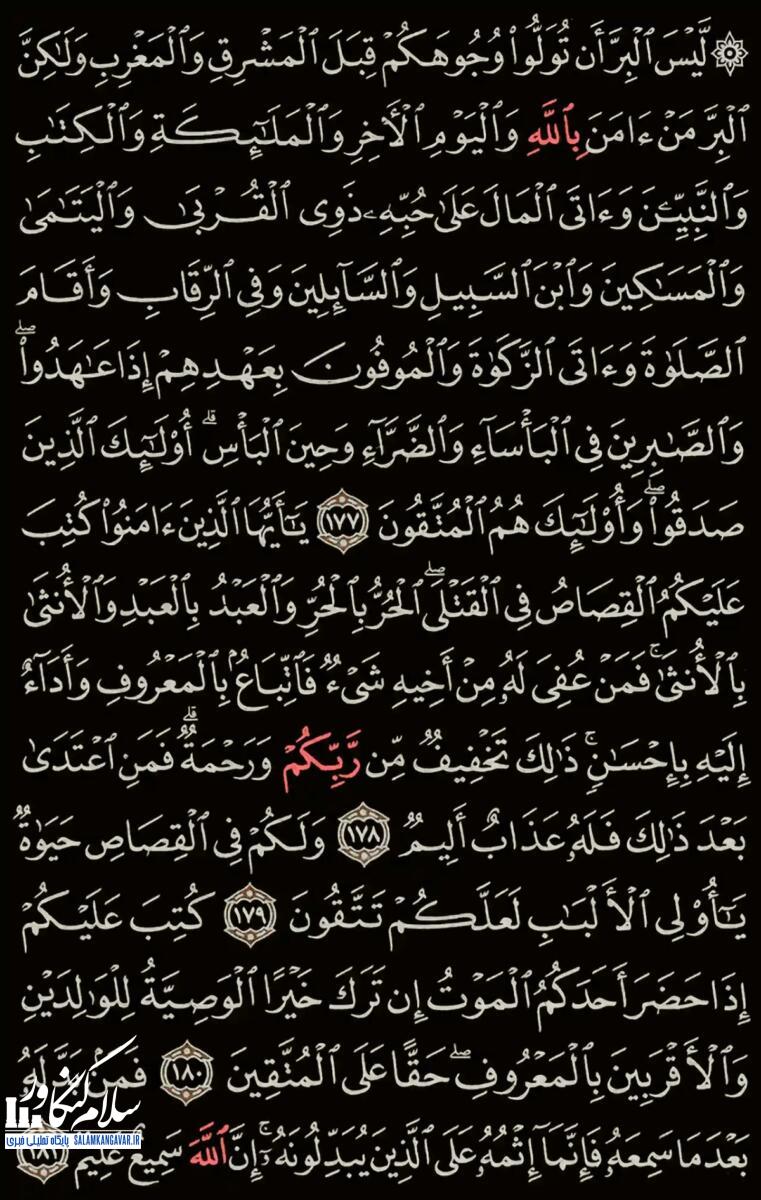 ۞ لَّيْسَ ٱلْبِرَّ أَن تُوَلُّوا۟ وُجُوهَكُمْ قِبَلَ ٱلْمَشْرِقِ وَٱلْمَغْرِبِ وَلَـٰكِنَّ
ٱلْبِرَّ مَنْ ءَامَنَ بِٱللَّهِ وَٱلْيَوْمِ ٱلْـَٔاخِرِ وَٱلْمَلَـٰٓئِكَةِ وَٱلْكِتَـٰبِ
وَٱلنَّبِيِّـۧنَ وَءَاتَى ٱلْمَالَ عَلَىٰ حُبِّهِۦ ذَوِى ٱلْقُرْبَىٰ وَٱلْيَتَـٰمَىٰ
وَٱلْمَسَـٰكِينَ وَٱبْنَ ٱلسَّبِيلِ وَٱلسَّآئِلِينَ وَفِى ٱلرِّقَابِ وَأَقَامَ
ٱلصَّلَوٰةَ وَءَاتَى ٱلزَّكَوٰةَ وَٱلْمُوفُونَ بِعَهْدِهِمْ إِذَا عَـٰهَدُوا۟ ۖ
وَٱلصَّـٰبِرِينَ فِى ٱلْبَأْسَآءِ وَٱلضَّرَّآءِ وَحِينَ ٱلْبَأْسِ ۗ أُو۟لَـٰٓئِكَ ٱلَّذِينَ
صَدَقُوا۟ ۖ وَأُو۟لَـٰٓئِكَ هُمُ ٱلْمُتَّقُونَ ١٧٧ يَـٰٓأَيُّهَا ٱلَّذِينَ ءَامَنُوا۟ كُتِبَ
عَلَيْكُمُ ٱلْقِصَاصُ فِى ٱلْقَتْلَى ۖ ٱلْحُرُّ بِٱلْحُرِّ وَٱلْعَبْدُ بِٱلْعَبْدِ وَٱلْأُنثَىٰ
بِٱلْأُنثَىٰ ۚ فَمَنْ عُفِىَ لَهُۥ مِنْ أَخِيهِ شَىْءٌ فَٱتِّبَاعٌۢ بِٱلْمَعْرُوفِ وَأَدَآءٌ
إِلَيْهِ بِإِحْسَـٰنٍ ۗ ذَٰلِكَ تَخْفِيفٌ مِّن رَّبِّكُمْ وَرَحْمَةٌ ۗ فَمَنِ ٱعْتَدَىٰ
بَعْدَ ذَٰلِكَ فَلَهُۥ عَذَابٌ أَلِيمٌ ١٧٨ وَلَكُمْ فِى ٱلْقِصَاصِ حَيَوٰةٌ
يَـٰٓأُو۟لِى ٱلْأَلْبَـٰبِ لَعَلَّكُمْ تَتَّقُونَ ١٧٩ كُتِبَ عَلَيْكُمْ
إِذَا حَضَرَ أَحَدَكُمُ ٱلْمَوْتُ إِن تَرَكَ خَيْرًا ٱلْوَصِيَّةُ لِلْوَٰلِدَيْنِ
وَٱلْأَقْرَبِينَ بِٱلْمَعْرُوفِ ۖ حَقًّا عَلَى ٱلْمُتَّقِينَ ١٨٠ فَمَنۢ بَدَّلَهُۥ
بَعْدَمَا سَمِعَهُۥ فَإِنَّمَآ إِثْمُهُۥ عَلَى ٱلَّذِينَ يُبَدِّلُونَهُۥٓ ۚ إِنَّ ٱللَّهَ سَمِيعٌ عَلِيمٌ ١٨١
سلام کنگاور
پایگاه تحلیلی خبری SALAMKANGAVAR.IR